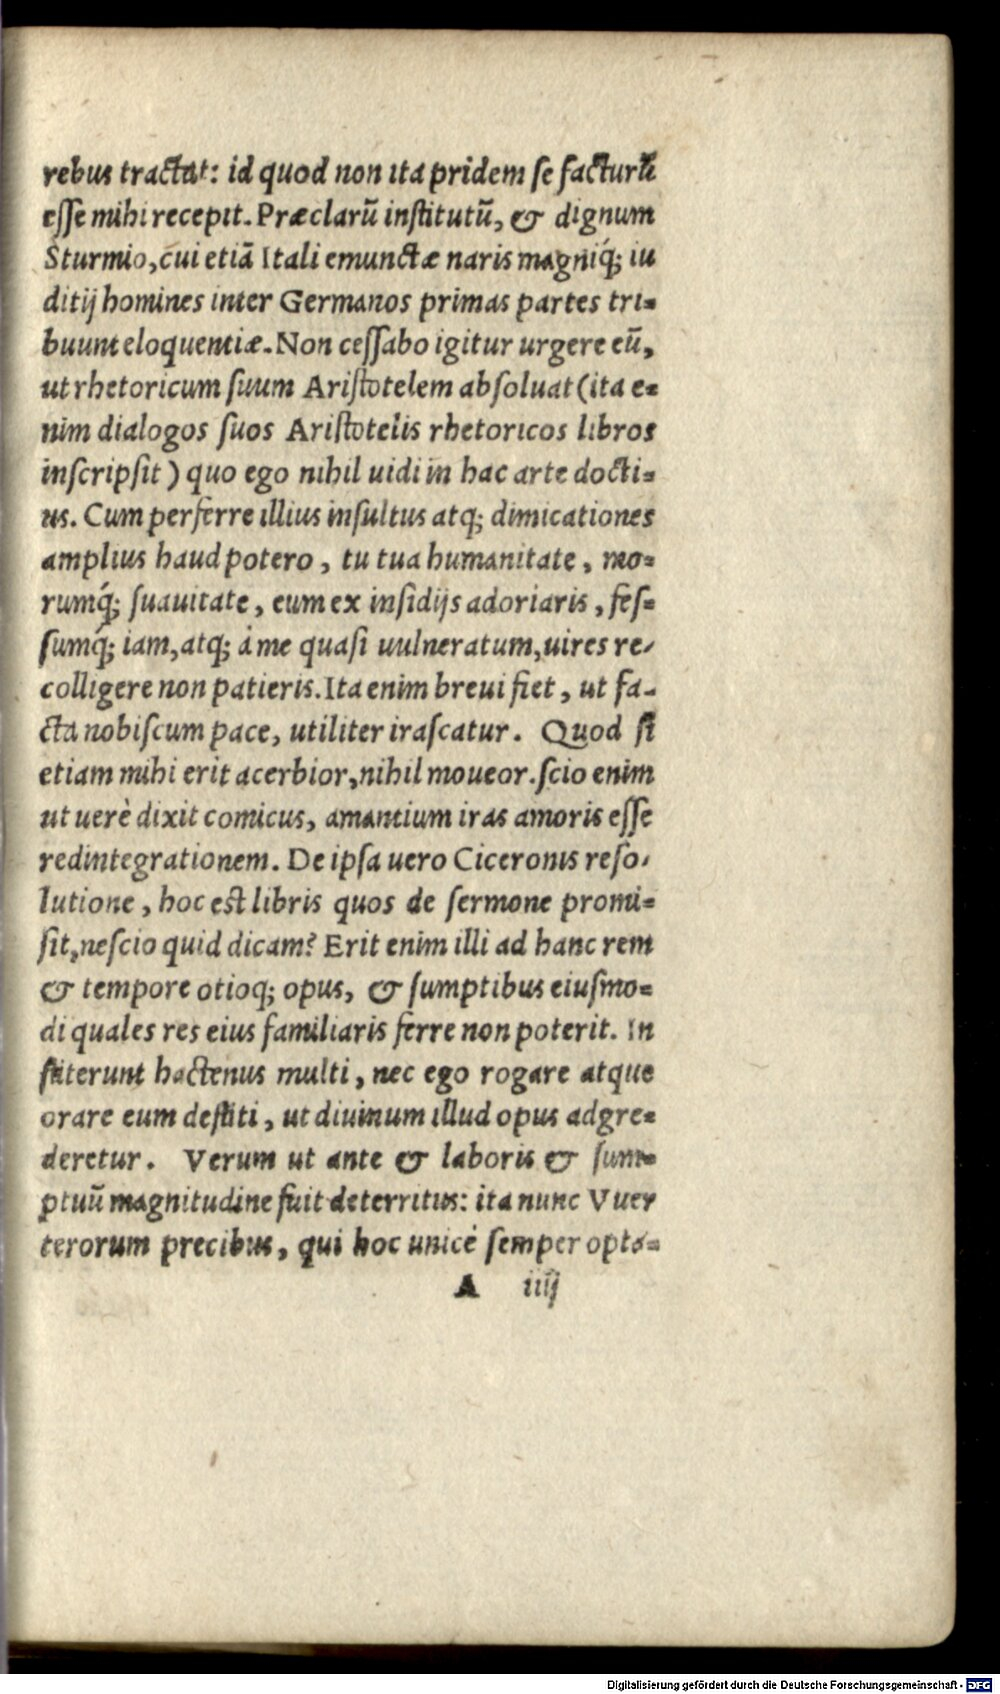 rebus tractat: id quod non ita pridem se facturũ
esse mihi recepit. Præclarũ institutũ, & dignum
Sturmio, cui etiã Itali emunctæ naris magniq́; iu
ditij homines inter Germanos primas partes tri-
buunt eloquentiæ. Non cessabo igitur urgere eũ,
ut rhetoricum suum Aristotelem absoluat (ita e-
nim dialogos suos Aristotelis rhetoricos libros
inscripsit) quo ego nihil uidi in hac arte docti-
us. Cum perferre illius insultus atq; dimicationes
amplius haud potero, tu tua humanitate, mo-
rumq́; suauitate, eum ex insidijs adoriaris, fes-
sumq́; iam, atq; à me quasi uulneratum, uires re-
colligere non patieris. Ita enim breui fiet, ut fa-
cta nobiscum pace, utiliter irascatur. Quod si
etiam mihi erit acerbior, nihil moueor. scio enim
ut uerè dixit comicus, amantium iras amoris esse
redintegrationem. De ipsa uero Ciceronis reso-
lutione, hoc est libris quos de sermone promi-
sit, nescio quid dicam? Erit enim illi ad hanc rem
& tempore otioq; opus, & sumptibus eiusmo-
di quales res eius familiaris ferre non poterit. In
stiterunt hactenus multi, nec ego rogare atque
orare eum destiti, ut diuinum illud opus adgre-
deretur. Verum ut ante & laboris & sum-
ptuũ magnitudine fuit deterritus: ita nunc Vuer
terorum precibus, qui hoc unicè semper opta-
A iiij
Digitalisierung gefördert durch die Deutsche Forschungsgemeinschaft - DFG